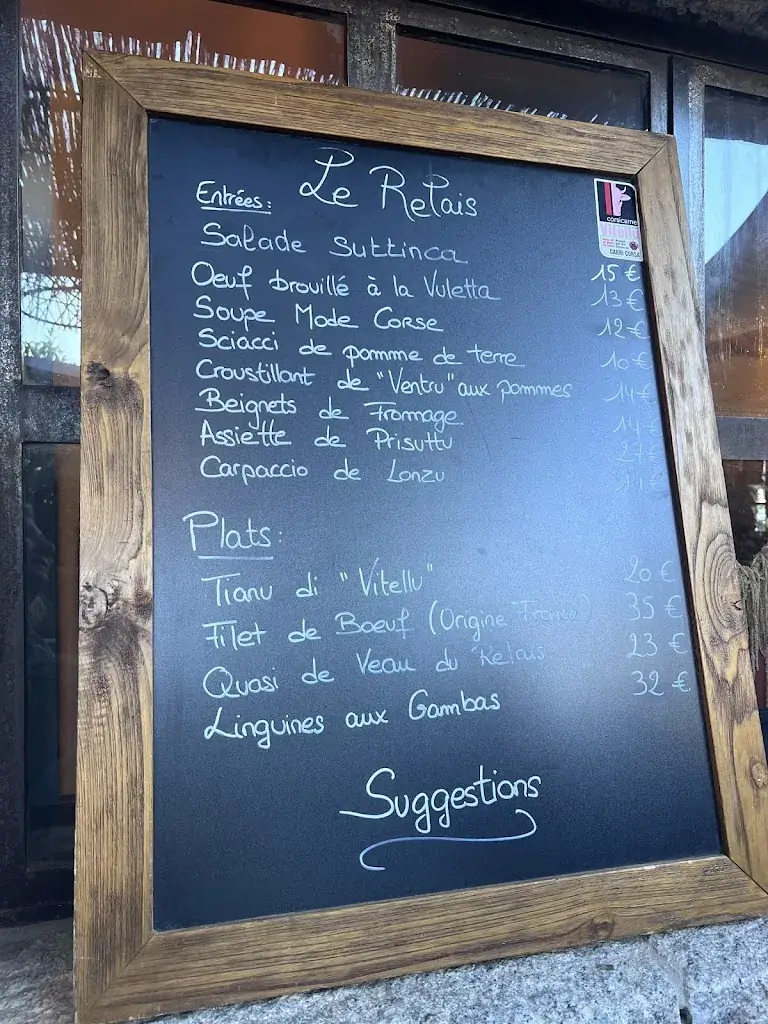 Le Relais
Entrées:
corsicarne
Vitellu
CARRI CORSA
Salade Suttinca 15 €
Oeuf brouillé à la Vuletta 13 €
Soupe Mode Corse 12 €
Sciacci de pomme de terre 10 €
Croustillant de "Ventru" aux pommes 14 €
Beignets de Fromage 14 €
Assiette de Prisuttu 27 €
Carpaccio de Lonzu
Plats:
Tianu di "Vitellu" 20 €
Filet de Boeuf (Origine France) 35 €
Quasi de Veau du Relais 23 €
Linguines aux Gambas 32 €
Suggestions